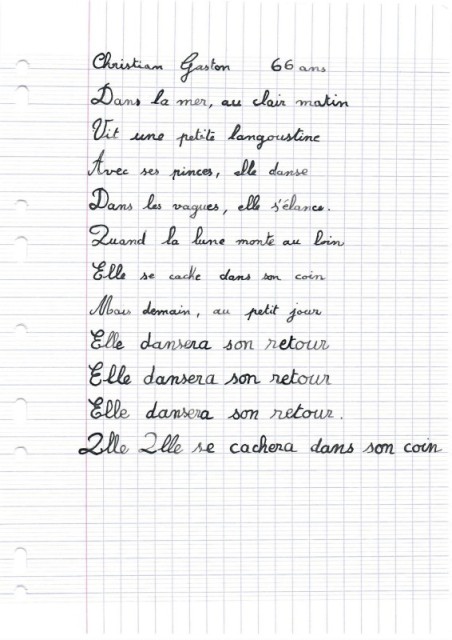 Christian Gaston 66 ans
Dans la mer, au clair matin
Vit une petite langoustine
Avec ses pinces, elle danse
Dans les vagues, elle s'élance.
Quand la lune monte au loin
Elle se cache dans son coin
Mais demain, au petit jour
Elle dansera son retour
Elle dansera son retour
Elle dansera son retour.
Elle Elle se cachera dans son coin